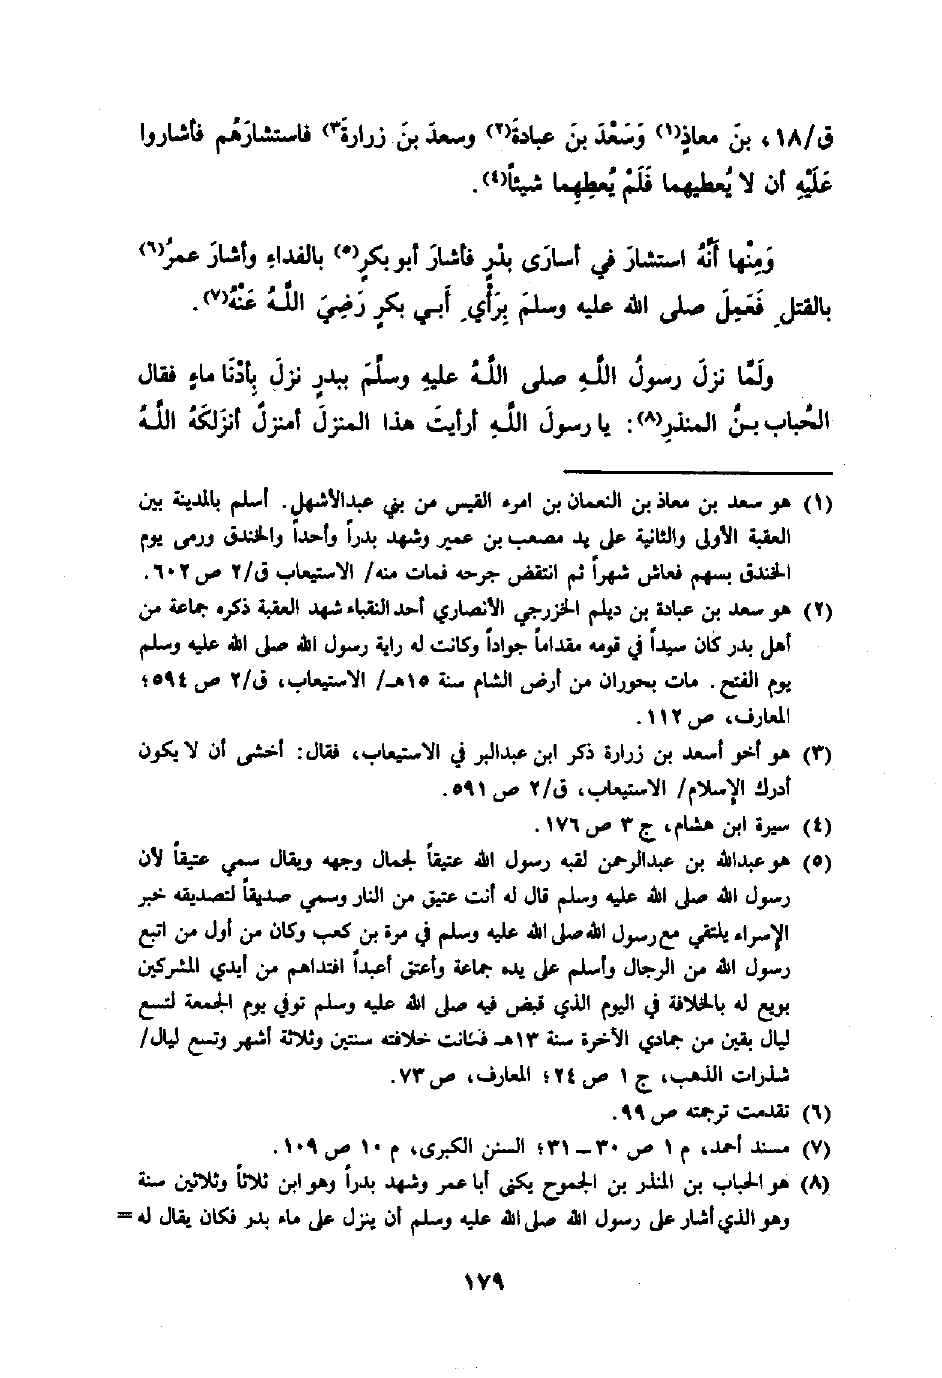 ق/١٨، بنَ معاذٍ(١) وَسَعْدَ بنَ عبادةَ(٢) وسعدَ بنَ زرارةَ(٣) فاستشارَهُم فأشاروا
عَلَيْهِ أن لا يُعطيهما فَلَمْ يُعطِهِما شيئاً(٤).
وَمِنْها أَنَّهُ استشارَ في أسارَى بدْرٍ فأشارَ أبو بكرٍ(٥) بالفداءِ وأشارَ عمرُ(٦)
بالقتلِ فَعَمِلَ صلى الله عليه وسلمَ بِرَأْيِ أَبي بكرٍ رَضِيَ اللَّهُ عَنْهُ(٧).
ولَمَّا نزلَ رسولُ اللَّهِ صلى اللَّهُ عليهِ وسلَّمَ ببدرٍ نزلَ بِأدْنَا ماءٍ فقال
الحُباب بنُ المنذرِ(٨): يا رسولَ اللَّهِ أرأيتَ هذا المنزلَ أمنزلٌ أنزلَكَهُ اللَّهُ
(١) هو سعد بن معاذ بن النعمان بن امرء القيس من بني عبدالأشهل. أسلم بالمدينة بين
العقبة الأولى والثانية على يد مصعب بن عمير وشهد بدراً وأحداً والخندق ورمى يوم
الخندق بسهم فعاش شهراً ثم انتقض جرحه فمات منه/ الاستيعاب ق/٢ ص ٦٠٢.
(٢) هو سعد بن عبادة بن ديلم الخزرجي الأنصاري أحد النقباء شهد العقبة ذكره جماعة من
أهل بدر كان سيداً في قومه مقداماً جواداً وكانت له راية رسول الله صلى الله عليه وسلم
يوم الفتح. مات بحوران من أرض الشام سنة ١٥هـ/ الاستيعاب، ق/٢ ص ٥٩٤؛
المعارف، ص ١١٢.
(٣) هو أخو أسعد بن زرارة ذكر ابن عبدالبر في الاستيعاب، فقال: أخشى أن لا يكون
أدرك الإسلام/ الاستيعاب، ق/٢ ص ٥٩١.
(٤) سيرة ابن هشام، ج ٣ ص ١٧٦.
(٥) هو عبدالله بن عبدالرحمن لقبه رسول الله عتيقاً لجمال وجهه ويقال سمي عتيقاً لأن
رسول الله صلى الله عليه وسلم قال له أنت عتيق من النار وسمي صديقاً لتصديقه خبر
الإسراء يلتقي مع رسول الله صلى الله عليه وسلم في مرة بن كعب وكان من أول من اتبع
رسول الله من الرجال وأسلم على يده جماعة وأعتق أعبداً افتداهم من أيدي المشركين
بويع له بالخلافة في اليوم الذي قبض فيه صلى الله عليه وسلم توفي يوم الجمعة لتسع
ليال بقين من جمادي الآخرة سنة ١٣هـ فكانت خلافته سنتين وثلاثة أشهر وتسع ليال/
شذرات الذهب، ج ١ ص ٢٤؛ المعارف، ص ٧٣.
(٦) تقدمت ترجمته ص ٩٩.
(٧) مسند أحمد، م ١ ص ٣٠ – ٣١؛ السنن الكبرى، م ١٠ ص ١٠٩.
(٨) هو الحباب بن المنذر بن الجموح يكنى أبا عمر وشهد بدراً وهو ابن ثلاثاً وثلاثين سنة
وهو الذي أشار على رسول الله صلى الله عليه وسلم أن ينزل على ماء بدر فكان يقال له =
١٧٩